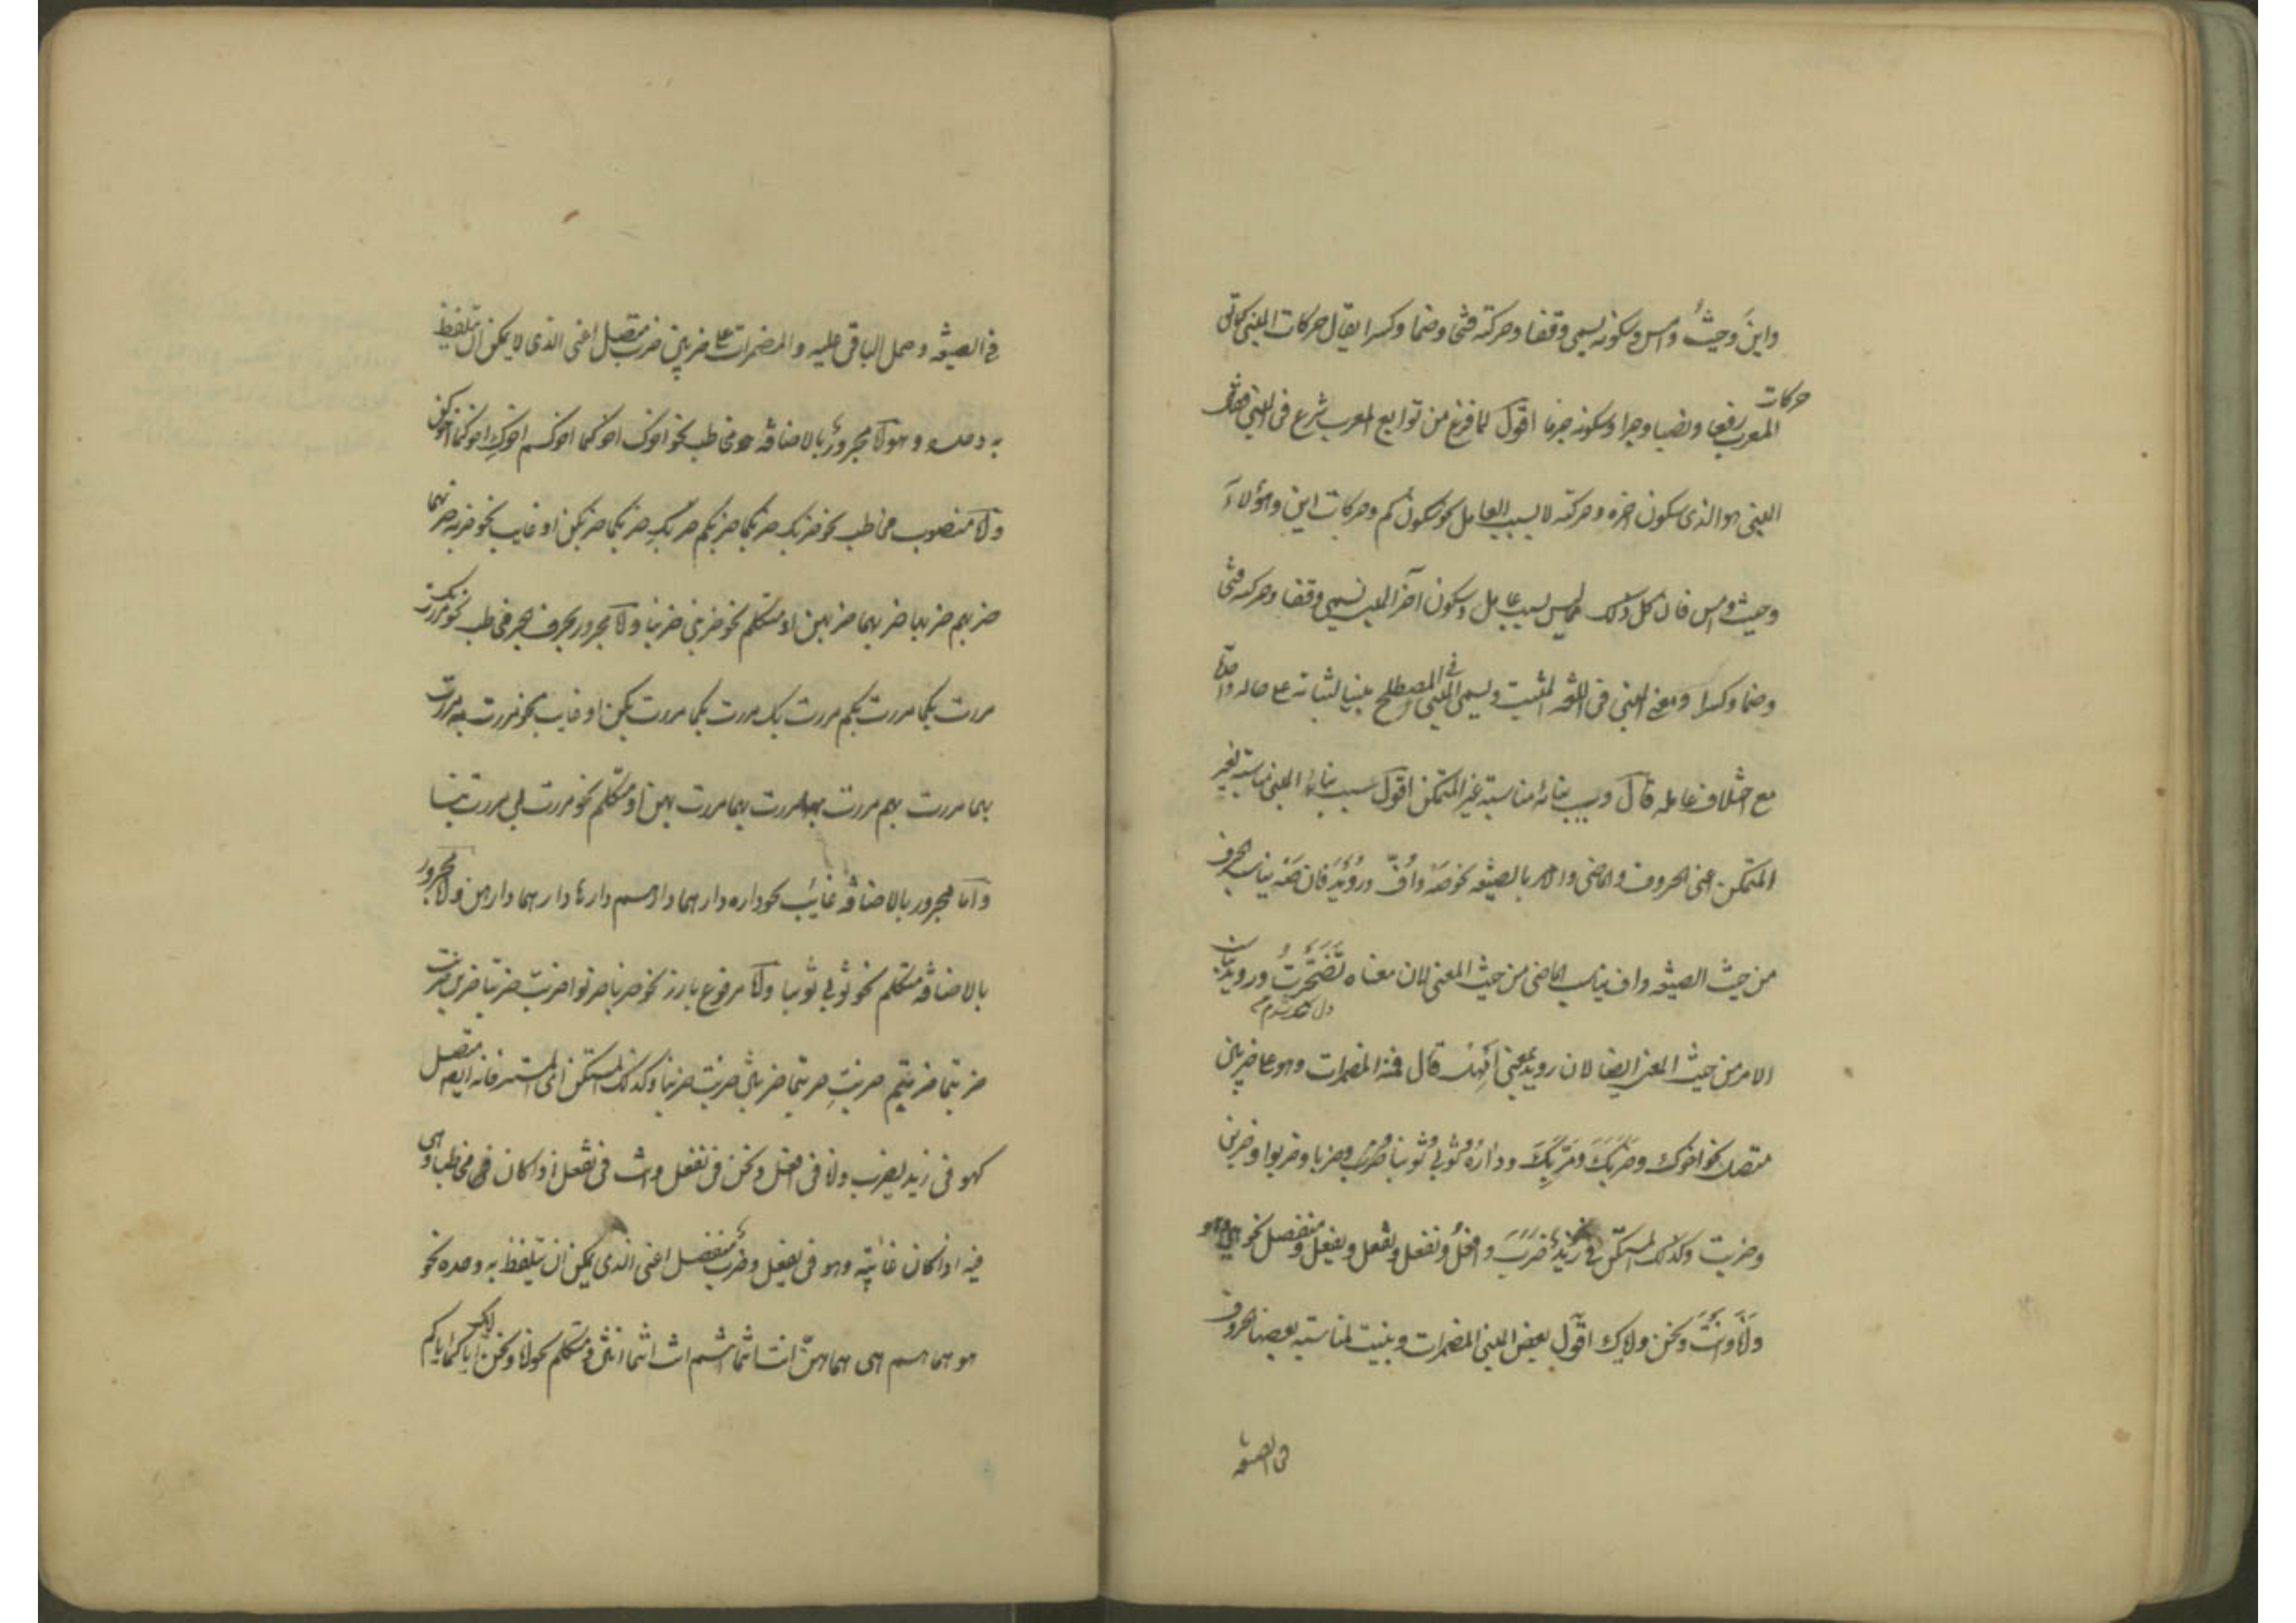 واینَ وحیثُ وامس وسکونه یسمی وقفا وحرکته فتحا وضما وکسرا یقال حرکات المبنی کما تری
حرکات
المعرب رفعا ونصبا وجرا وسکونه جزما اقول لما فرغ من توابع المعرب شرع فی المبنی فقال
المبنی هو الذی سکون اخره وحرکته لا بسبب العامل نحو سکون کم وحرکات این وهؤلاءِ
وحیث وامس فان کل ذلک لیس بسبب عامل وسکون آخر المبنی یسمی وقفا وحرکته فتحا
وضما وکسرا ومعنی المبنی فی اللغة المثبت ویسمی المبنی فی المصطلح مبنیا لثباته علی حاله واحدة
مع اختلاف عامله قال وسبب بنائه مناسبته غیر المتمکن اقول سبب بناء المبنی مناسبته لغیر
المتمکن اعنی الحروف والماضی والامر بالصیغه نحو صَهْ واُفٍّ ورُوَیْدَ فان صَهْ یناسب الحرف
من حیث الصیغه واف یناسب الماضی من حیث المعنی لان معناه تَضَجَّرْتُ وروید یناسب
الامر من حیث المعنی ایضا لان روید بمعنی اَمْهِلْ قال فمنه المضمرات وهو علی ضربین
متصل نحو اخوک وضَرَبَکَ ومَرَّ بِکَ ودارُهُ وثوبی وثوبنا وضربت وضربا وضربوا وضربن
وضربت وکذلک المستکن فی زیدٌ ضَرَبَ وافعلُ ونفعل وتفعل ویفعل ومنفصل نحو هو
وانا وانتَ ونحن وایاک اقول بعض المبنی المضمرات وبنیت لمناسبته بعضها الحروف
فی الصیغه
فی الصیغه وحمل الباقی علیه والمضمرات علی ضربین ضرب متصل اعنی الذی لا یمکن ان یتلفظ
به وحده وهو اما مجرور بالاضافه مخاطب نحو اخوک اخوکما اخوکم اخوکِ اخوکما اخوکن
واما منصوب مخاطب نحو ضربک ضربکما ضربکم ضربکِ ضربکما ضربکن او غایب نحو ضربه ضربهما
ضربهم ضربها ضربهما ضربهن او متکلم نحو ضربنی ضربنا واما مجرور بحرف جر مخاطب نحو مررت بک
مررت بکما مررت بکم مررت بک مررت بکما مررت بکن او غایب نحو مررت به مررت
بهما مررت بهم مررت بها مررت بهما مررت بهن او متکلم نحو مررت بی مررت بنا
واما مجرور بالاضافه غائب نحو داره دارهما دارهم دارها دارهما دارهن واما مجرور
بالاضافه متکلم نحو ثوبی ثوبنا واما مرفوع بارز نحو ضربا ضربوا ضربت ضربتا ضربن ضربت
ضربتما ضربتم ضربتِ ضربتما ضربتن ضربت ضربنا وکذلک المستکن اعنی المستتر فانه ایضا متصل
کهو فی زید یضرب وانا فی افعل ونحن فی نفعل وانت فی تفعل اذا کان مخاطبا وهی
فیه اذا کان غائبة وهو فی یفعل وضرب منفصل اعنی الذی یمکن ان یتلفظ به وحده نحو
هو هما هم هی هما هنّ انت انتما انتم انت انتما انتن ومتکلم نحو انا ونحن ایاک ایاکما ایاکم